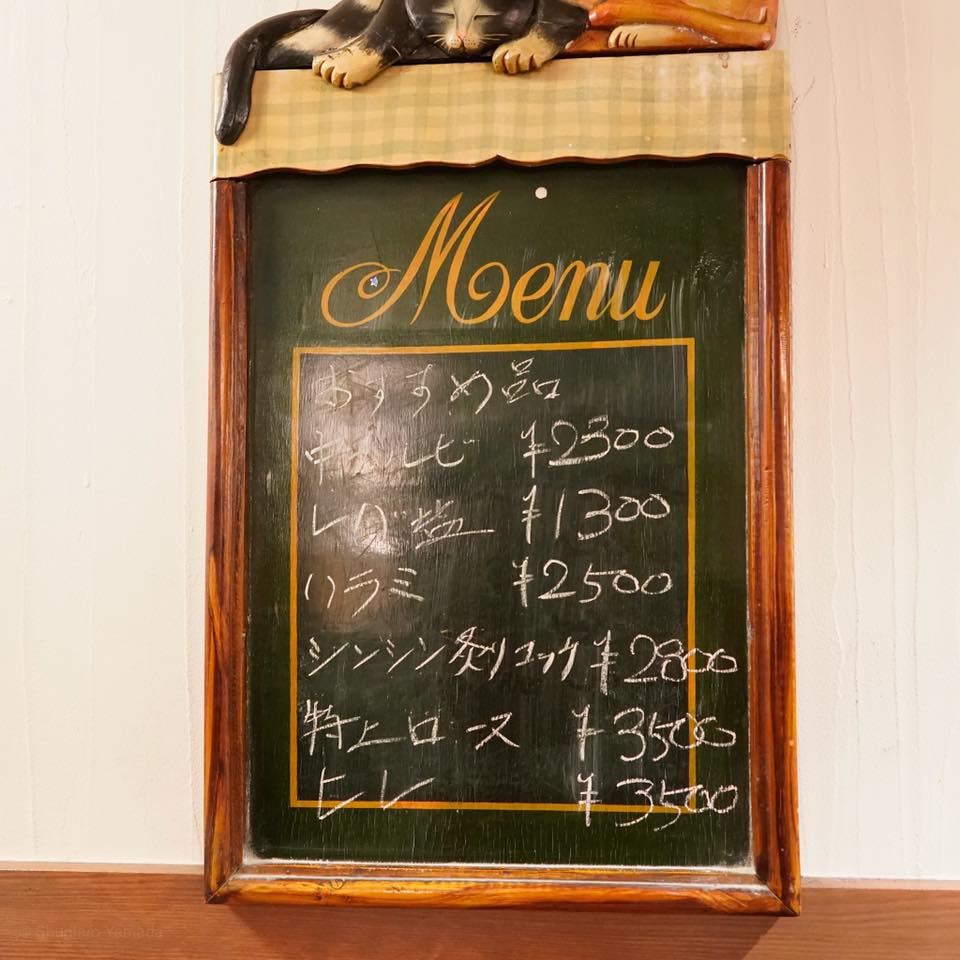 Menu
おすすめ品
中カルビ ¥2300
塩 ¥1300
ハラミ ¥2500
シンシン炙りユッケ ¥2800
特上ロース ¥3500
ヒレ ¥3500
Yamada